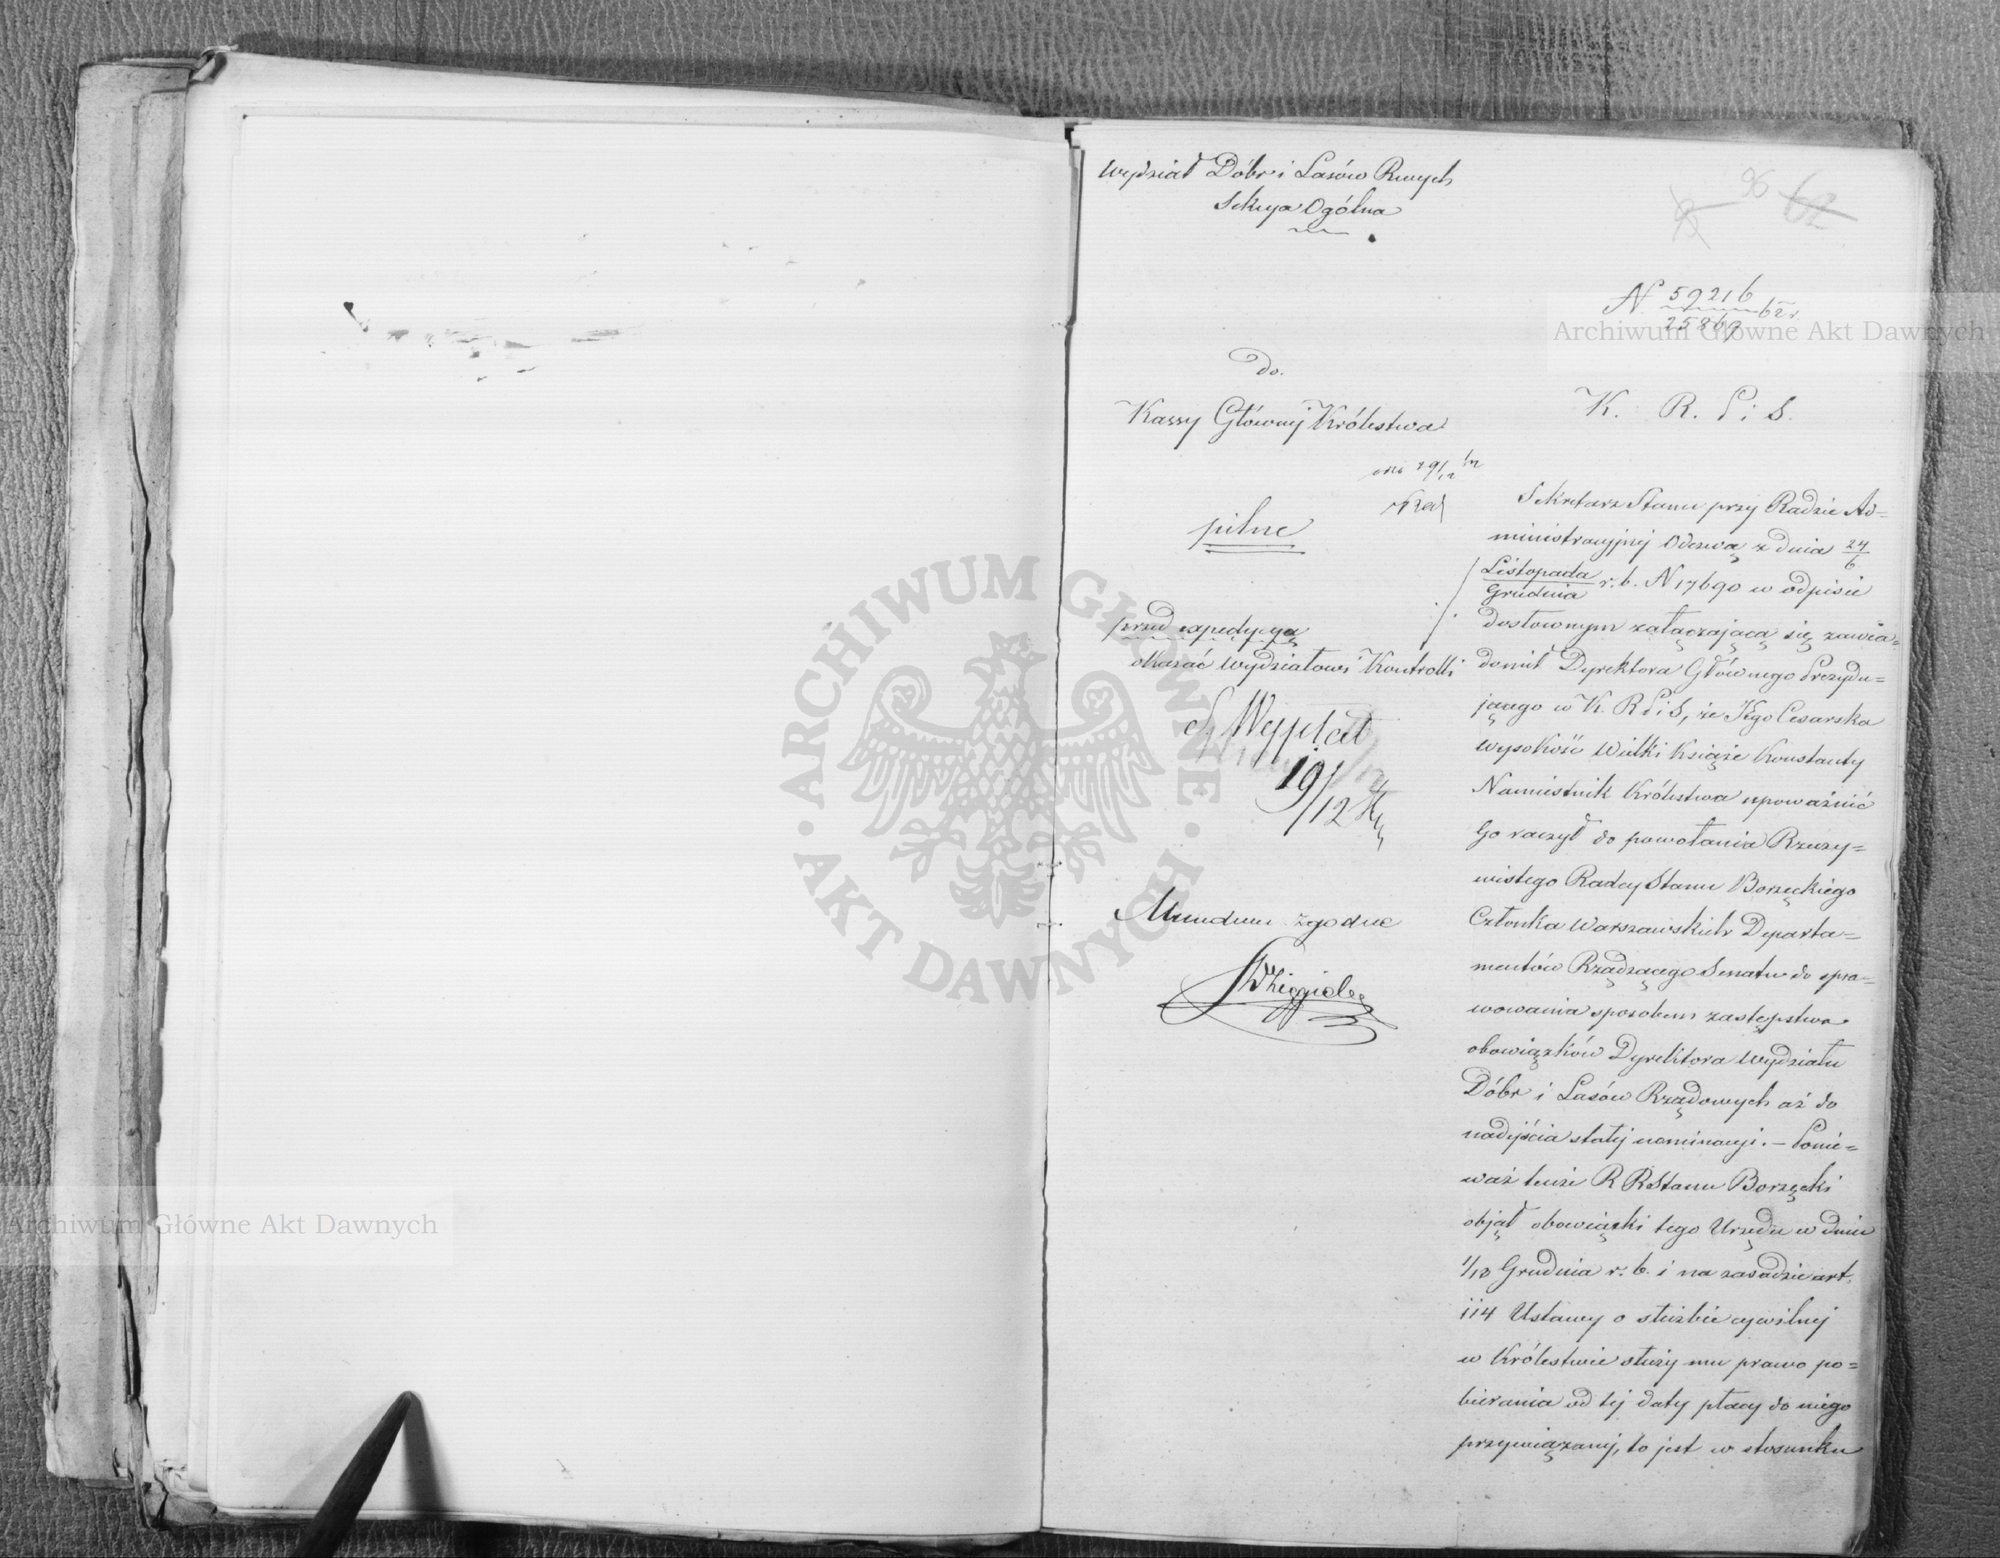 Wydział Dóbr i Lasów Rwych
Sekcya Ogólna
96 62
N. 59216/25869 62 r.
do.
Kassy Głównej Królestwa
pilne
przed expedycyą
okazać Wydziałowi Kontrolli
19/12
Mundum zgodne
K. R. P i S.
Sekretarz Stanu przy Radzie Ad=
ministracyjnej Odezwą z dnia 24/6
Listopada/Grudnia r. b. N 17690 w odpisie
dosłownym załączającą się zawia=
domił Dyrektora Głównego Prezydu=
jącego w K. R P i S, że Jego Cesarska
Wysokość Wielki Książe Konstanty
Namiestnik Królestwa upoważnić
Go raczył do powołania Rzeczy=
wistego Radcy Stanu Borzęckiego
Członka Warszawskich Departa=
mentów Rządzącego Senatu do spra=
wowania sposobem zastępstwa
obowiązków Dyrektora Wydziału
Dóbr i Lasów Rządowych aż do
nadejścia stałej nominacyi. – Ponie=
waż tenże R R Stanu Borzęcki
objął obowiązki tego Urzędu w dniu
1/13 Grudnia r. b. i na zasadzie art.
114 Ustawy o służbie cywilnej
w Królestwie służy mu prawo po=
bierania od tej daty płacy do niego
przywiązanej, to jest w stosunku
Archiwum Główne Akt Dawnych
Archiwum Główne Akt Dawnych
ARCHIWUM GŁÓWNE AKT DAWNYCH